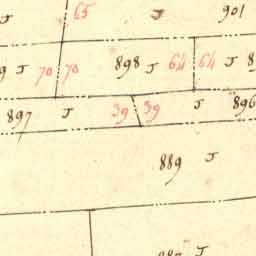 65 J 901
J
J 70 70 898 J 64 64 J
897 J 39 39 J 896
889 J
J